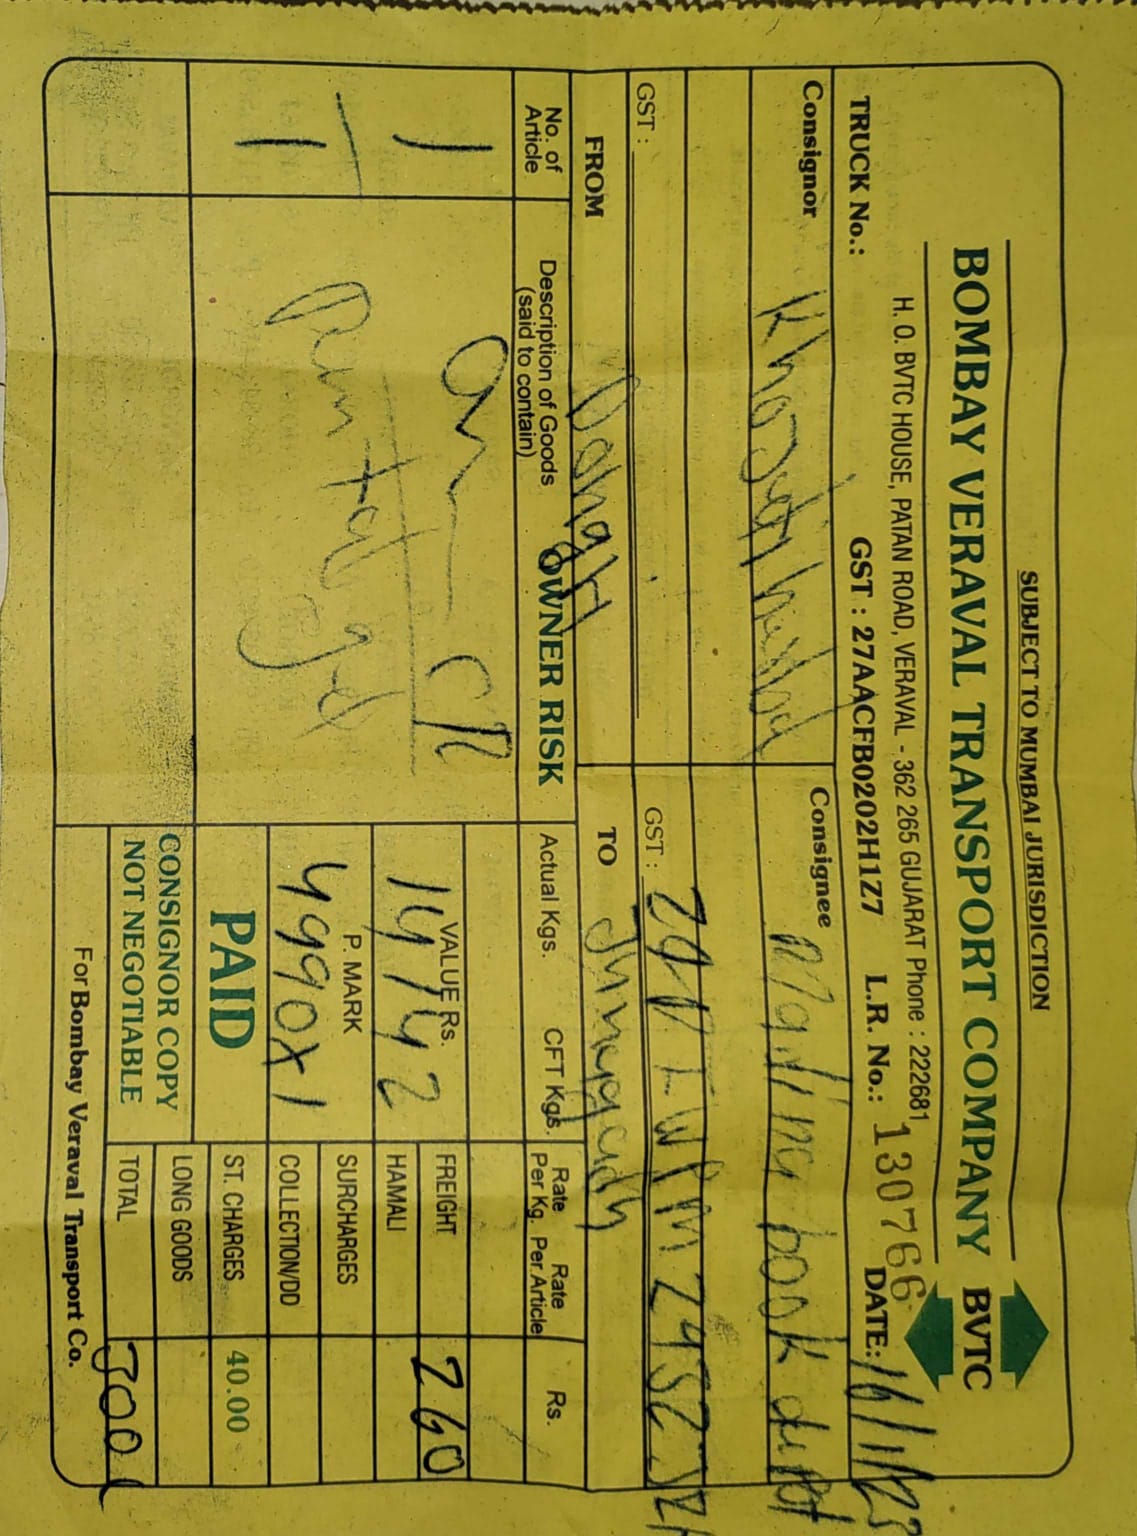 SUBJECT TO MUMBAI JURISDICTION
BOMBAY VERAVAL TRANSPORT COMPANY BVTC
H. O. BVTC HOUSE, PATAN ROAD, VERAVAL - 362 265 GUJARAT Phone : 222681
TRUCK No.: GST : 27AACFB0202H1Z7 L.R. No.: 130766 DATE: 16/11/23
Consignor Consignee book depot
GST : GST :
FROM Dongri TO Junagadh
No. of Article Description of Goods (said to contain) OWNER RISK Actual Kgs. CFT Kgs. Rate Per Kg. Rate Per Article Rs.
1 VALUE Rs. 14742 FREIGHT 260
HAMALI
P. MARK 4990X1 SURCHARGES
1 COLLECTION/DD
PAID ST. CHARGES 40.00
CONSIGNOR COPY LONG GOODS
NOT NEGOTIABLE TOTAL 300
For Bombay Veraval Transport Co.